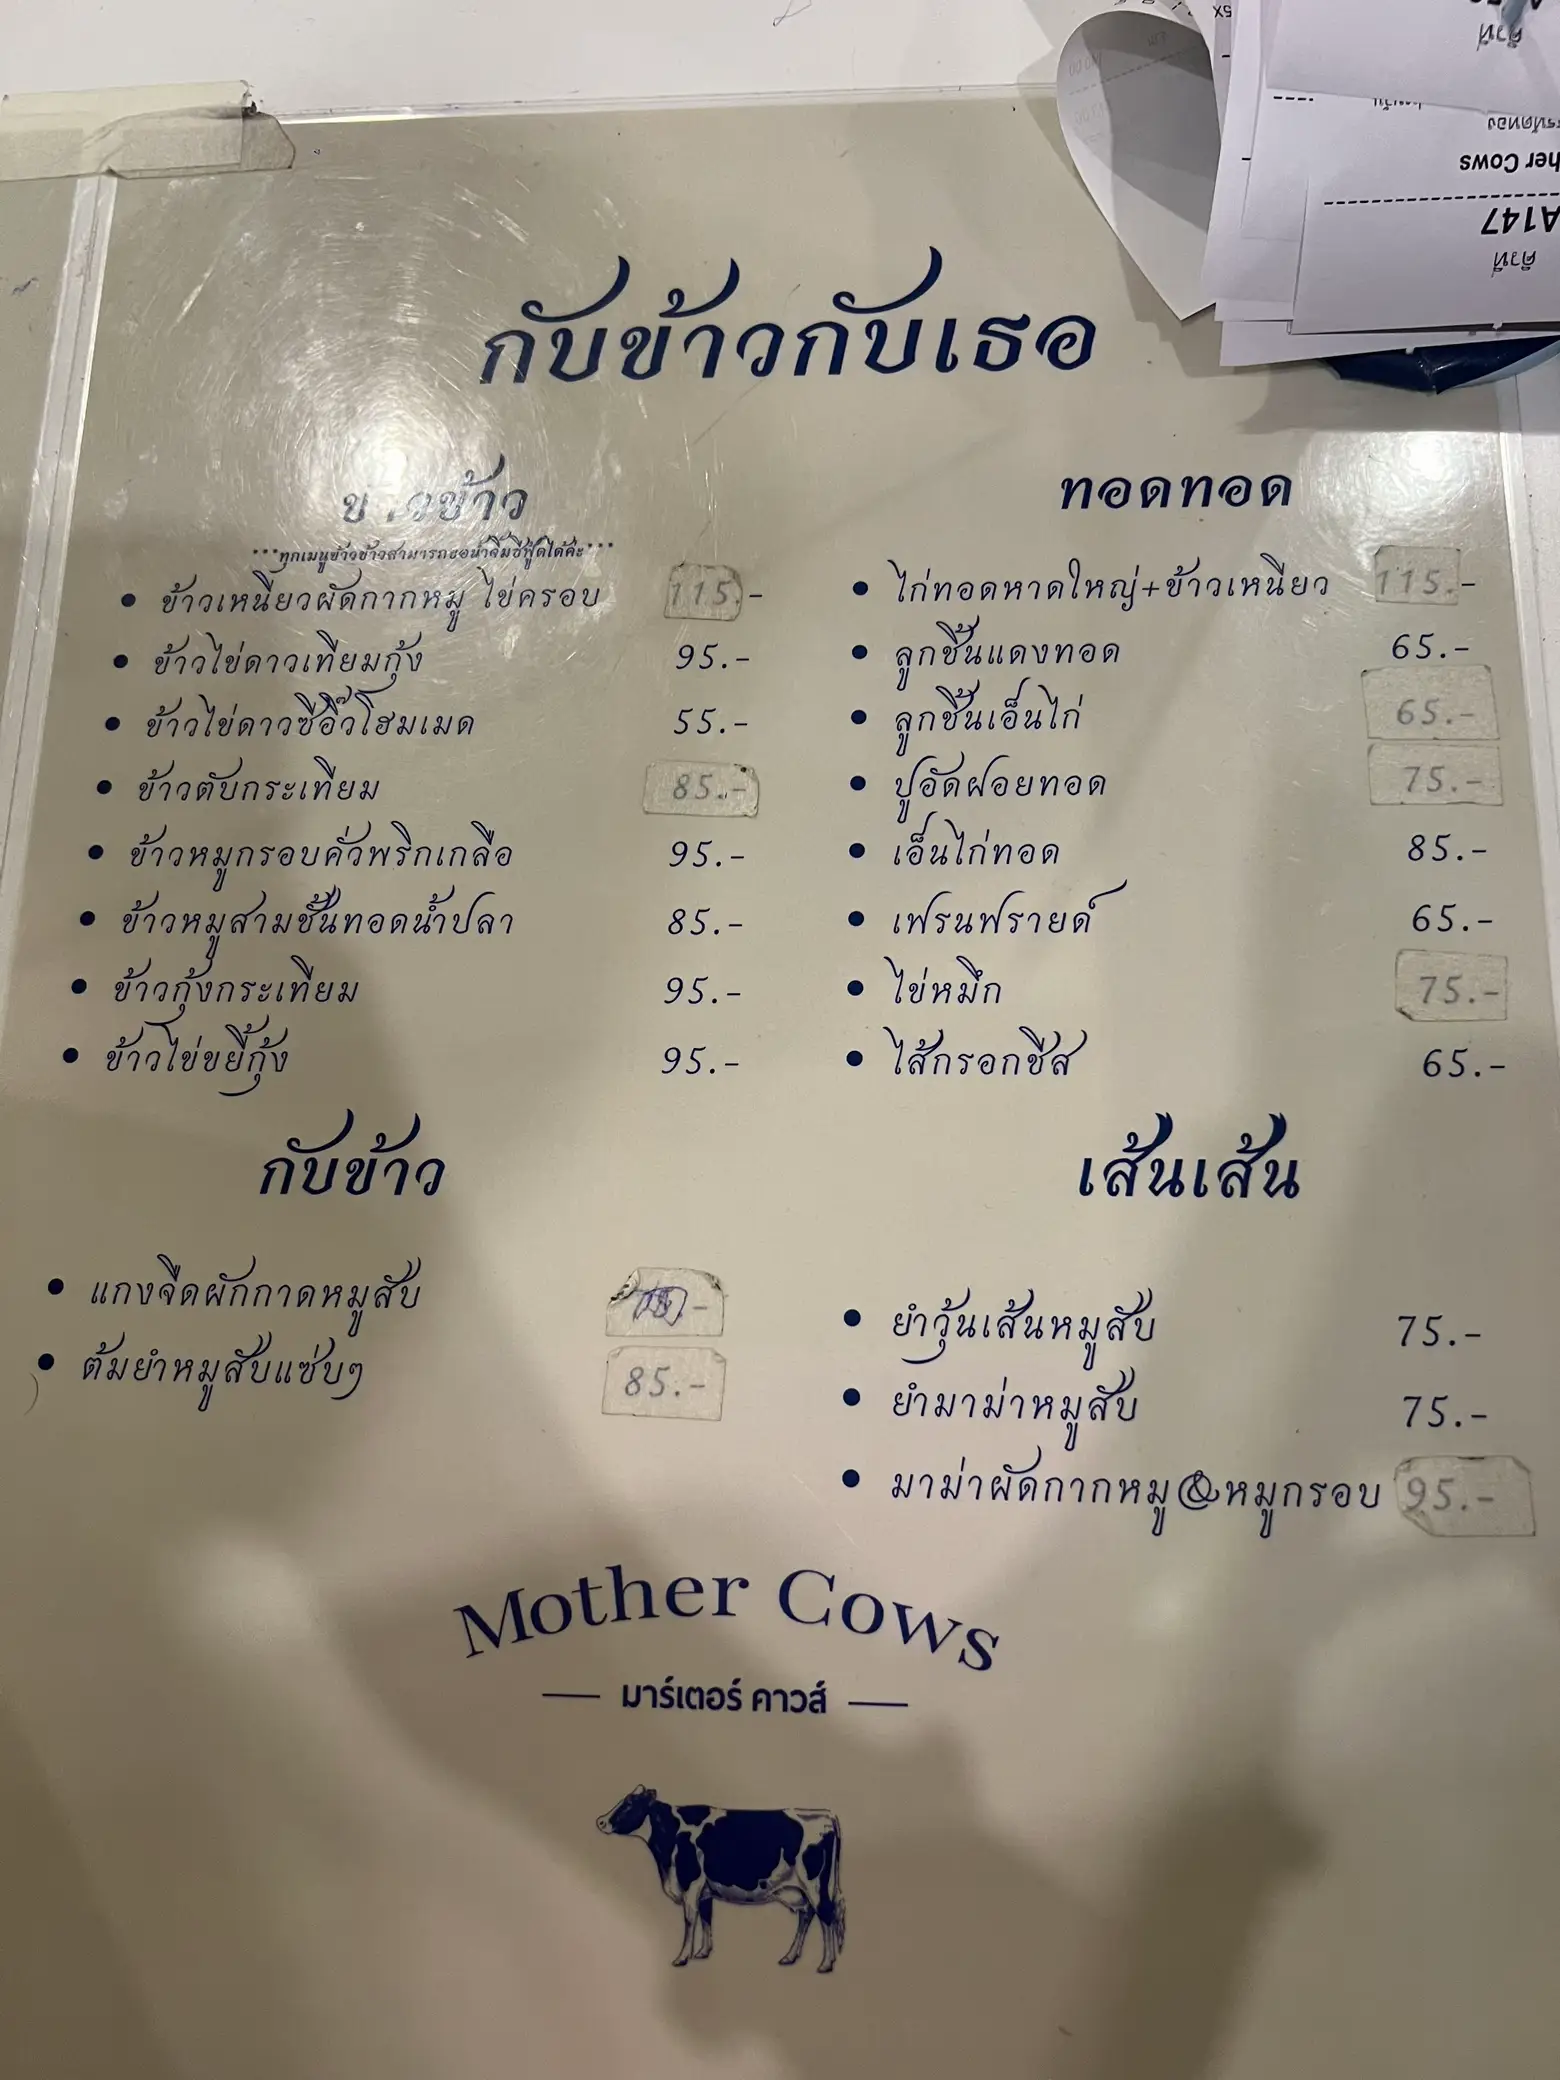 กับข้าวกับเธอ
ข้าวข้าว
***ทุกเมนูข้าวข้าวสามารถขอน้ำจิ้มซีฟู้ดได้ค่ะ***
• ข้าวเหนียวผัดกากหมู ไข่ครอบ 115.-
• ข้าวไข่ดาวเทียมกุ้ง 95.-
• ข้าวไข่ดาวซีอิ๊วโฮมเมด 55.-
• ข้าวตับกระเทียม 85.-
• ข้าวหมูกรอบคั่วพริกเกลือ 95.-
• ข้าวหมูสามชั้นทอดน้ำปลา 85.-
• ข้าวกุ้งกระเทียม 95.-
• ข้าวไข่ขยี้กุ้ง 95.-
กับข้าว
• แกงจืดผักกาดหมูสับ
• ต้มยำหมูสับแซ่บๆ 85.-
ทอดทอด
• ไก่ทอดหาดใหญ่+ข้าวเหนียว 115.-
• ลูกชิ้นแดงทอด 65.-
• ลูกชิ้นเอ็นไก่ 65.-
• ปูอัดฝอยทอด 75.-
• เอ็นไก่ทอด 85.-
• เฟรนฟรายด์ 65.-
• ไข่หมึก 75.-
• ไส้กรอกชีส 65.-
เส้นเส้น
• ยำวุ้นเส้นหมูสับ 75.-
• ยำมาม่าหมูสับ 75.-
• มาม่าผัดกากหมู&หมูกรอบ 95.-
Mother Cows
มาร์เตอร์ คาวส์
คิวที่
A147
her Cows
คิวที่